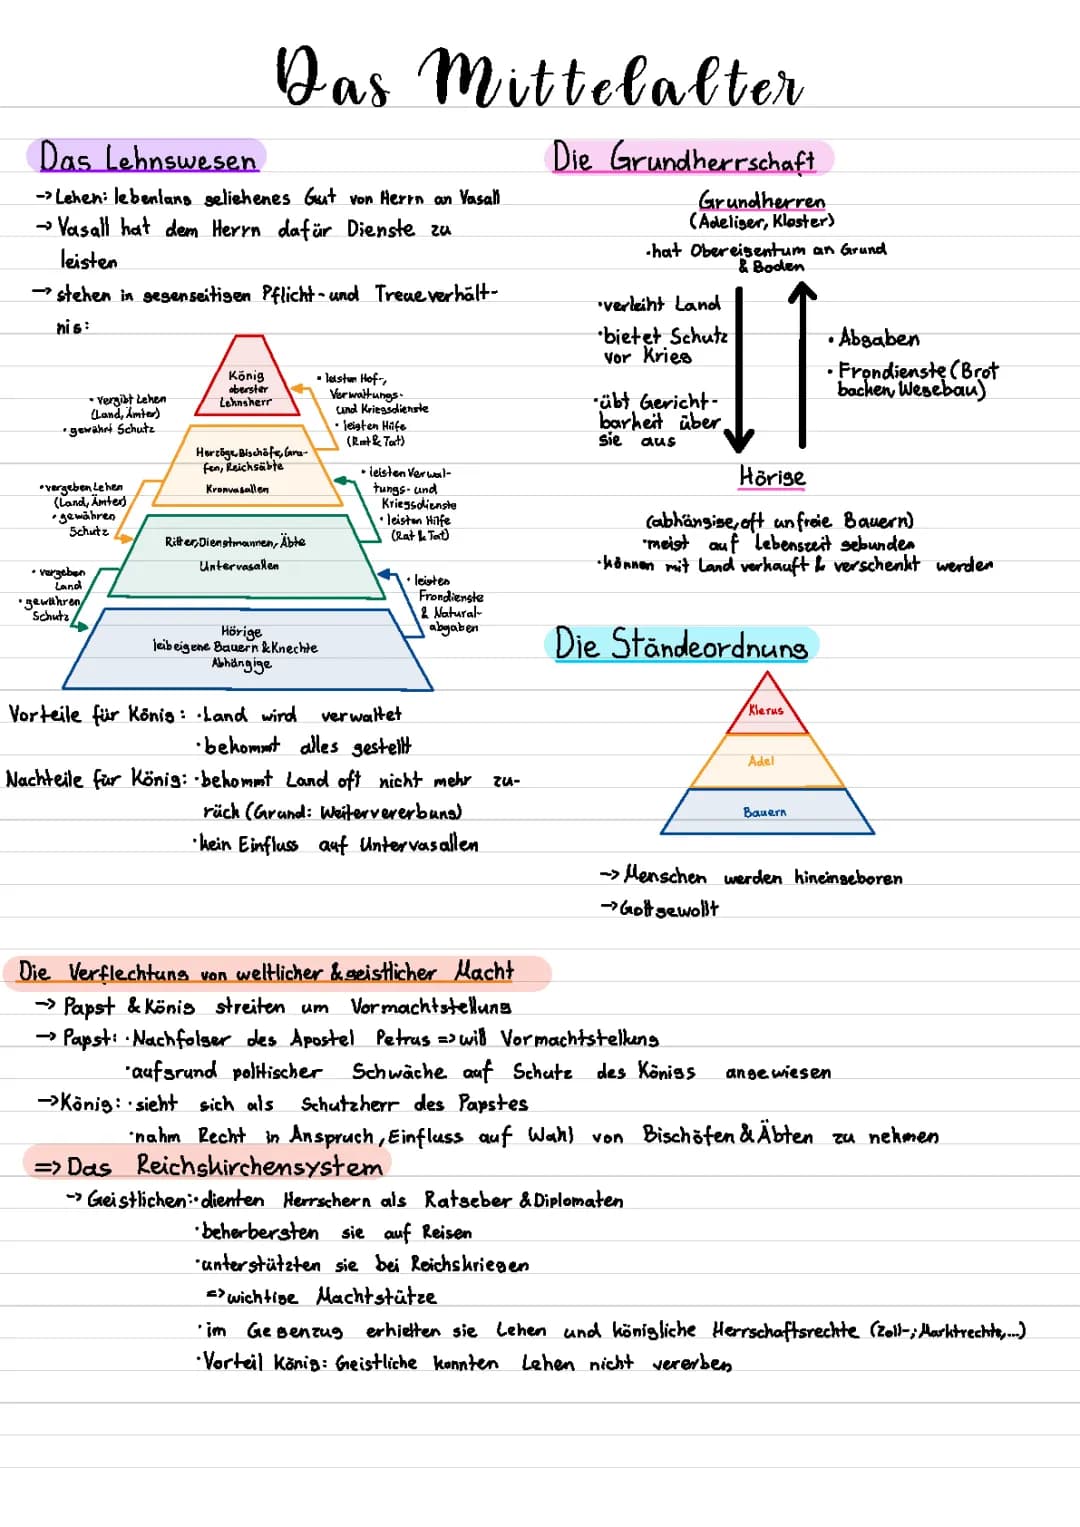 Das Mittelalter
Das Lehnswesen
-> Lehen: lebenlang geliehenes Gut von Herrn an Vasall
-> Vasall hat dem Herrn dafür Dienste zu
leisten
-> stehen in gegenseitigen Pflicht- und Treueverhält-
nis:
König
oberster
Lehnsherr
• vergibt Lehen
(Land, Ämter)
• gewährt Schutz
• leisten Hof-,
Verwaltungs-
und Kriegsdienste
• leisten Hilfe
(Rat & Tat)
Herzöge, Bischöfe, Gra-
fen, Reichsäbte
Kronvasallen
• vergeben Lehen
(Land, Ämter)
• gewähren
Schutz
• leisten Verwal-
tungs- und
Kriegsdienste
• leisten Hilfe
(Rat & Tat)
Ritter, Dienstmannen, Äbte
Untervasallen
• vergeben
Land
• gewähren
Schutz
• leisten
Frondienste
& Natural-
abgaben
Hörige
leibeigene Bauern & Knechte
Abhängige
Vorteile für König: • Land wird verwaltet
• bekommt alles gestellt
Nachteile für König: • bekommt Land oft nicht mehr zu-
rück (Grund: Weitervererbung)
• kein Einfluss auf Untervasallen
Die Grundherrschaft
Grundherren
(Adeliger, Kloster)
• hat Obereigentum an Grund
& Boden
• verleiht Land
• bietet Schutz
vor Krieg
• übt Gericht-
barkeit über
sie aus
• Abgaben
• Frondienste (Brot
backen, Wegebau)
Hörige
(abhängige, oft unfreie Bauern)
• meist auf Lebenszeit gebunden
• können mit Land verkauft & verschenkt werden
Die Ständeordnung
Klerus
Adel
Bauern
-> Menschen werden hineingeboren
-> Gott gewollt
Die Verflechtung von weltlicher & geistlicher Macht
-> Papst & König streiten um Vormachtstellung
-> Papst: • Nachfolger des Apostel Petrus => will Vormachtstellung
• aufgrund politischer Schwäche auf Schutz des Königs angewiesen
-> König: • sieht sich als Schutzherr des Papstes
• nahm Recht in Anspruch, Einfluss auf Wahl von Bischöfen & Äbten zu nehmen
=> Das Reichskirchensystem
-> Geistlichen: • dienten Herrschern als Ratgeber & Diplomaten
• beherbergten sie auf Reisen
• unterstützten sie bei Reichskriegen
=> wichtige Machtstütze
• im Gegenzug erhielten sie Lehen und königliche Herrschaftsrechte (Zoll-, Marktrechte,...)
• Vorteil König: Geistliche konnten Lehen nicht vererben